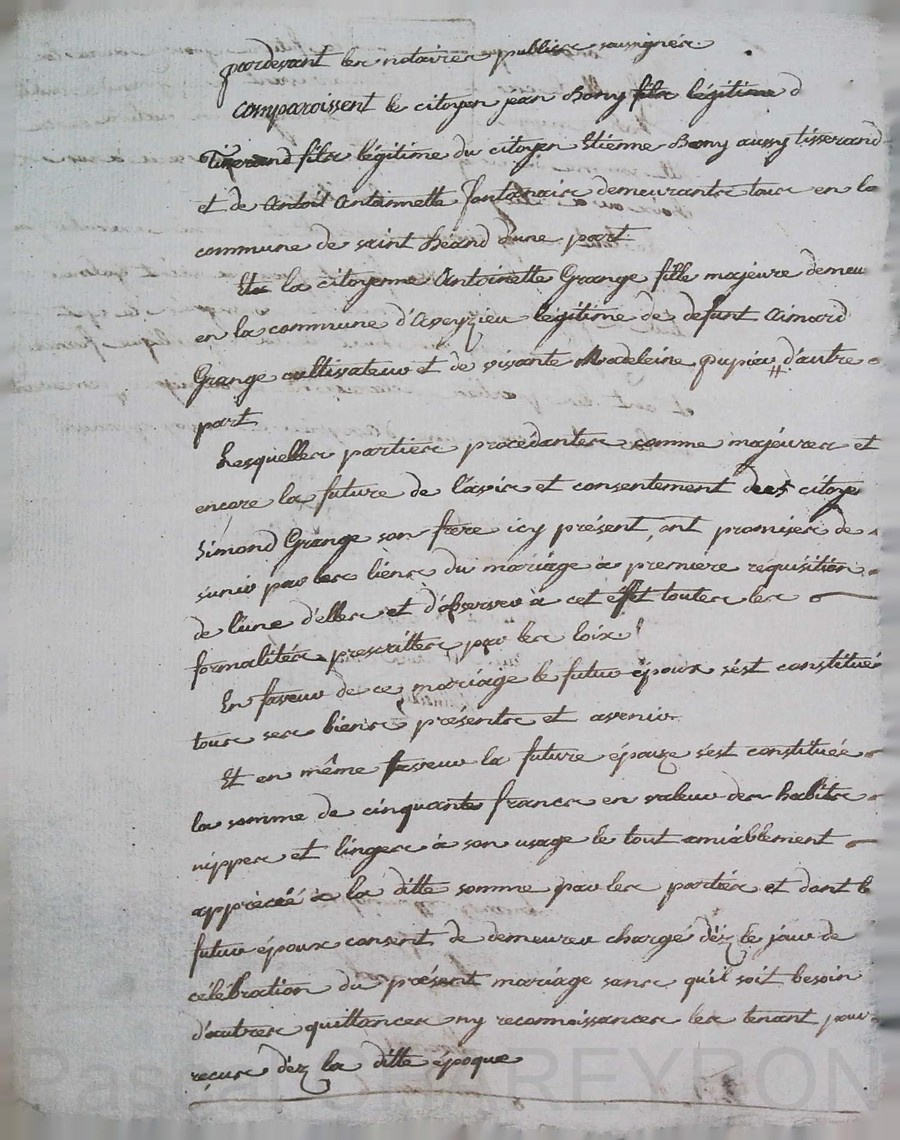 pardevant les notaires publics soussignés
Comparoissent le citoyen jean Bony fils légitime d
Tisserand fils légitime du citoyen Etienne Bony aussy tisserand
et de Antoi Antoinnette demeurants tous en la
commune de saint héand d'une part
Et la citoyenne Antoinette Grange fille majeure demeu
en la commune d'Aveyzieu légitime de defunt Aimard
Grange cultivateur et de vivante Madeleine pupier d'autre
part
Lesquelles parties procédantes comme majeures et
encore la future de l'avis et consentement citoye
Simond Grange son frère icy présent ont promises de
s'unir par les liens du mariage à première requisition
de l'une d'elles et d'observer à cet éffet toutes les
formalités prescrittes par les loix
En faveur de ce mariage le futur époux s'est constitué
tous ses biens présents et avenir
Et en même faveur la future épouze s'est constituée
la somme de cinquante francs en valeur des habits
nippes et linges à son usage le tout amiablement
apprécié à la ditte somme par les parties et dont le
futur époux consent de demeurer chargé déz le jour de
célébration du présent mariage sans qu'il soit besoin
d'autres quittances ny reconnoissances les tenant pour
reçus déz la ditte époque
Pascal CHAREYRON